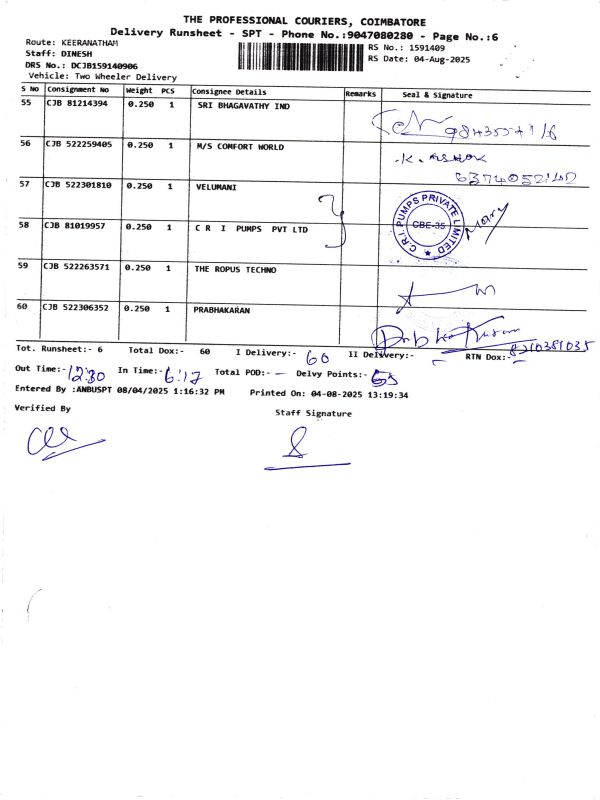 THE PROFESSIONAL COURIERS, COIMBATORE
Delivery Runsheet - SPT - Phone No.:9047080280 - Page No.:6
Route: KEERANATHAM
RS No.: 1591409
Staff: DINESH
RS Date: 04-Aug-2025
DRS No.: DCJB159140906
Vehicle: Two Wheeler Delivery
S No Consignment No Weight PCS Consignee Details Remarks Seal & Signature
55 CJB 81214394 0.250 1 SRI BHAGAVATHY IND
56 CJB 522259405 0.250 1 M/S COMFORT WORLD K. ASHOK
6374052140
57 CJB 522301810 0.250 1 VELUMANI
58 CJB 81019957 0.250 1 C R I PUMPS PVT LTD C.R.I. PUMPS PRIVATE LIMITED CBE-35
59 CJB 522263571 0.250 1 THE ROPUS TECHNO
60 CJB 522306352 0.250 1 PRABHAKARAN
8210381035
Tot. Runsheet:- 6 Total Dox:- 60 I Delivery:- 60 II Delivery:- RTN Dox:-
Out Time:- 12:30 In Time:- 6:17 Total POD:- - Delvy Points:-
Entered By :ANBUSPT 08/04/2025 1:16:32 PM Printed On: 04-08-2025 13:19:34
Verified By
Staff Signature